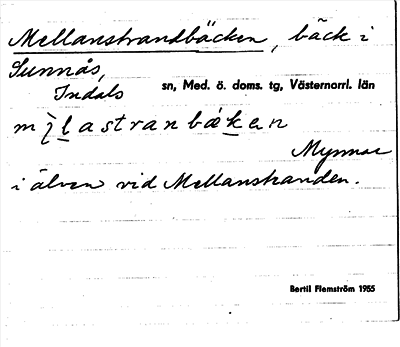 Mellanstrandbäcken, bäck i
Sunnås,
Indals sn, Med. ö. doms. tg, Västernorrl. län
Mynnar
i älven vid Mellanstranden.
Bertil Flemström 1955